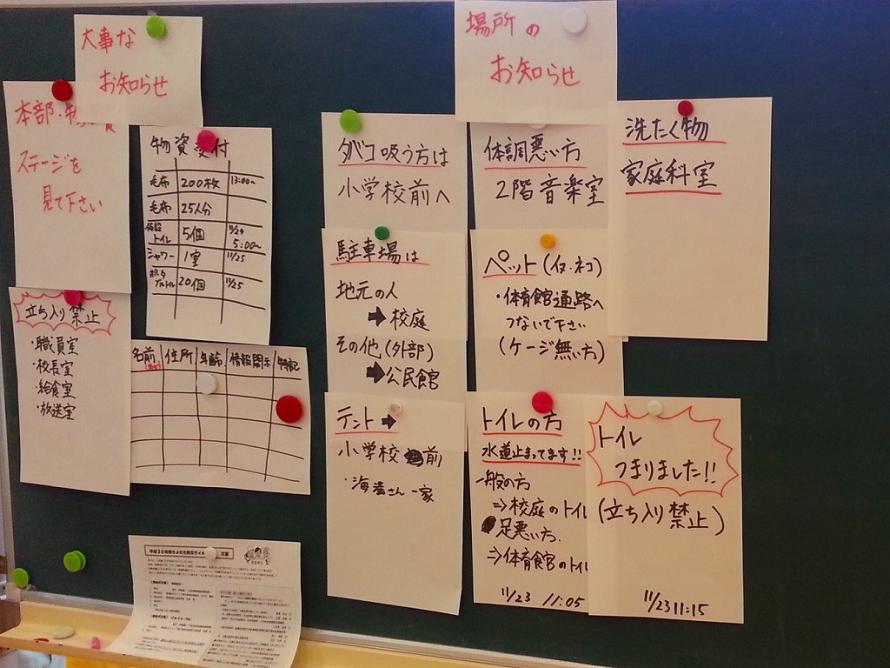 大事な
お知らせ
場所の
お知らせ
本部・
ステージを
見て下さい
物資受付
毛布 200枚 13:00~
毛布 25人分
仮設トイレ 5個 11/24 5:00~
シャワー 1室 11/25
20個 11/25
立ち入り禁止
・職員室
・校長室
・給食室
・放送室
名前 住所 年齢 情報開示 特記
タバコ吸う方は
小学校前へ
駐車場は
地元の人
➡校庭
その他(外部)
➡公民館
テント➡
小学校前
・さん一家
体調悪い方
2階音楽室
ペット(イヌ・ネコ)
・体育館通路へ
つないで下さい
(ケージ無い方)
トイレの方
水道止まってます!!
一般の方
⇒校庭のトイレ
足悪い方.
⇒体育館のトイレ
11/23 11:05
洗たく物
家庭科室
トイレ
つまりました!!
(立ち入り禁止)
11/23 11:15